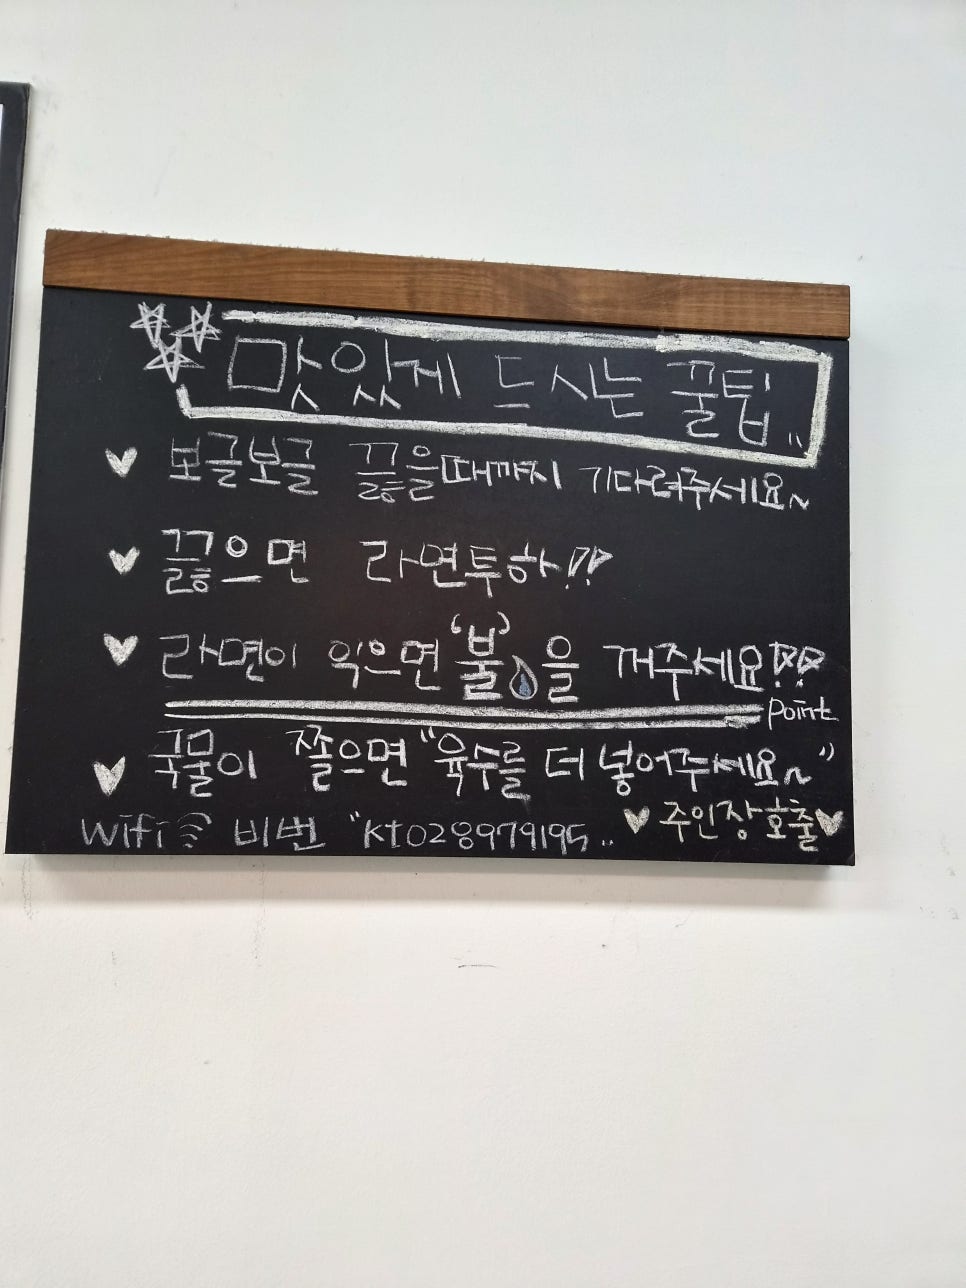 맛있게 드시는 꿀팁"
보글보글 끓을때까지 기다려주세요~
끓으면 라면투하!!
라면이 익으면 '불'을 꺼주세요!!
point
국물이 쫄으면 "육수를 더 넣어주세요~"
♥ 주인장호출 ♥
Wifi 비번 "kt028979195..